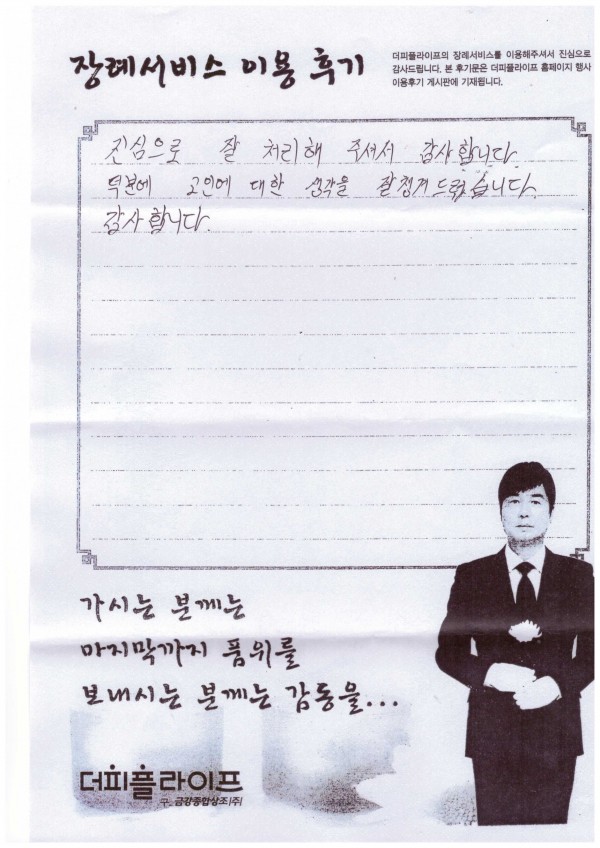 장례서비스 이용 후기
더피플라이프의 장례서비스를 이용해주셔서 진심으로
감사드립니다. 본 후기문은 더피플라이프 홈페이지 행사
이용후기 게시판에 기재됩니다.
진심으로 잘 처리해 주셔서 감사합니다.
덕분에 고인에 대한 생각을 잘정겨드렸습니다.
감사합니다.
가시는 분께는
마지막까지 품위를
보내시는 분께는 감동을...
더피플라이프
구_금강종합상조(주)